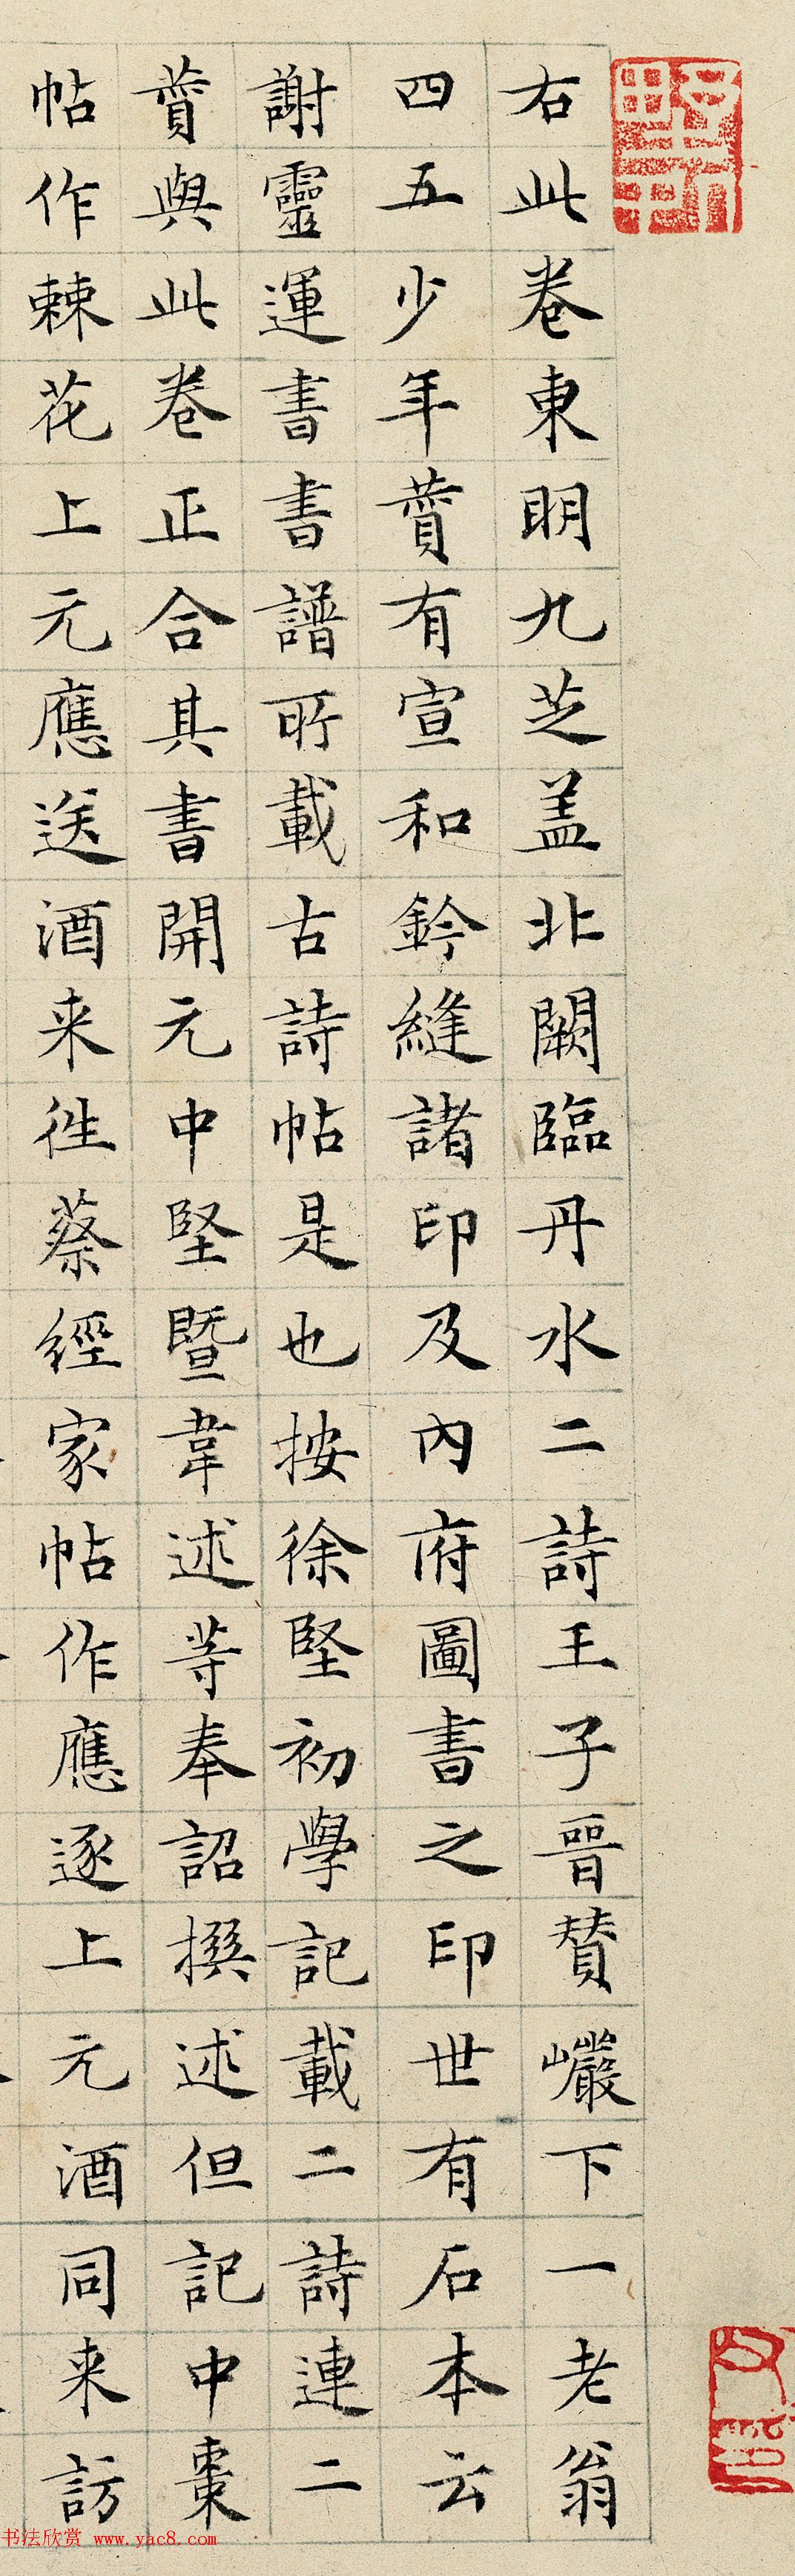 右此卷東明九芝盖北闕臨丹水二詩王子晉賛巗下一老翁
四五少年賛有宣和鈐縫諸印及內府圖書之印世有石本云
謝靈運書書譜所載古詩帖是也按徐堅初學記載二詩連二
賛與此卷正合其書開元中堅暨韋述等奉詔撰述但記中棗
帖作棘花上元應送酒来徃蔡經家帖作應逐上元酒同来訪
书法欣赏 www.yac8.com